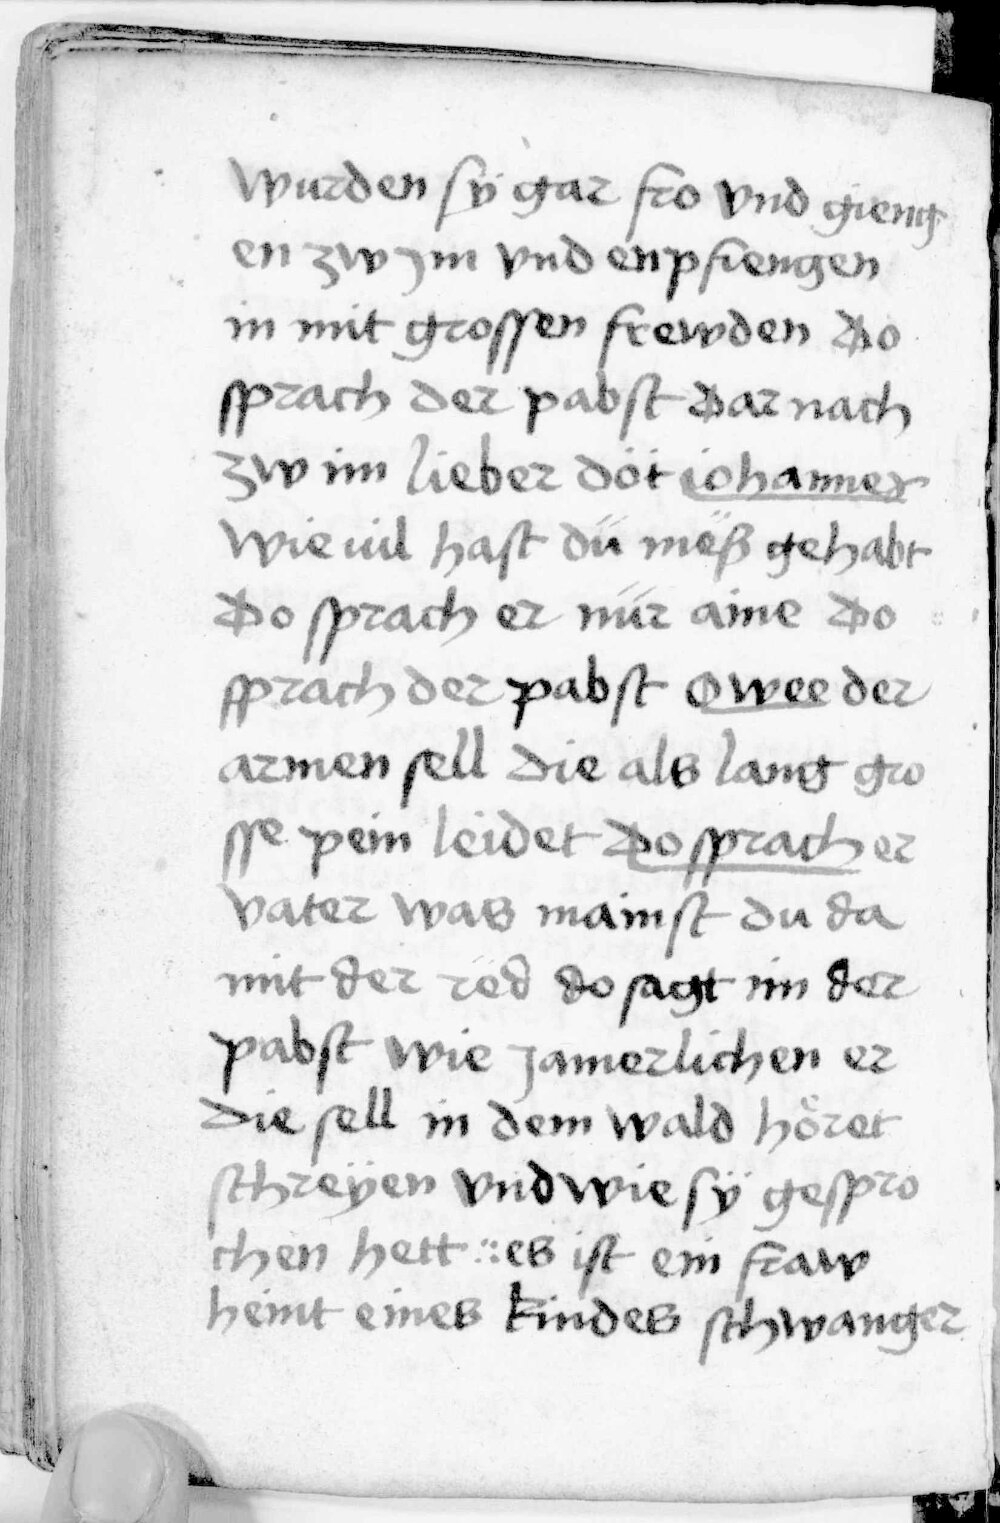 wurden sÿ gar fro vnd gieng
en zw jm vnd enpfiengen
in mit grossen frewden Do
sprach der pabst Dar nach
zw im lieber döt iohannes
wie uil hast dü mëß gehabt
Do sprach er nür aine Do
sprach der pabst Owee der
armen sell die als lang gro
sse pein leidet Do sprach er
vater was mainst du da
mit der rëd do sagt im der
pabst wie jamerlichen er
die sell in dem wald höret
schreÿen vnd wie sÿ gespro
chen hett :: es ist ein fraw
heint eines kindes schwanger